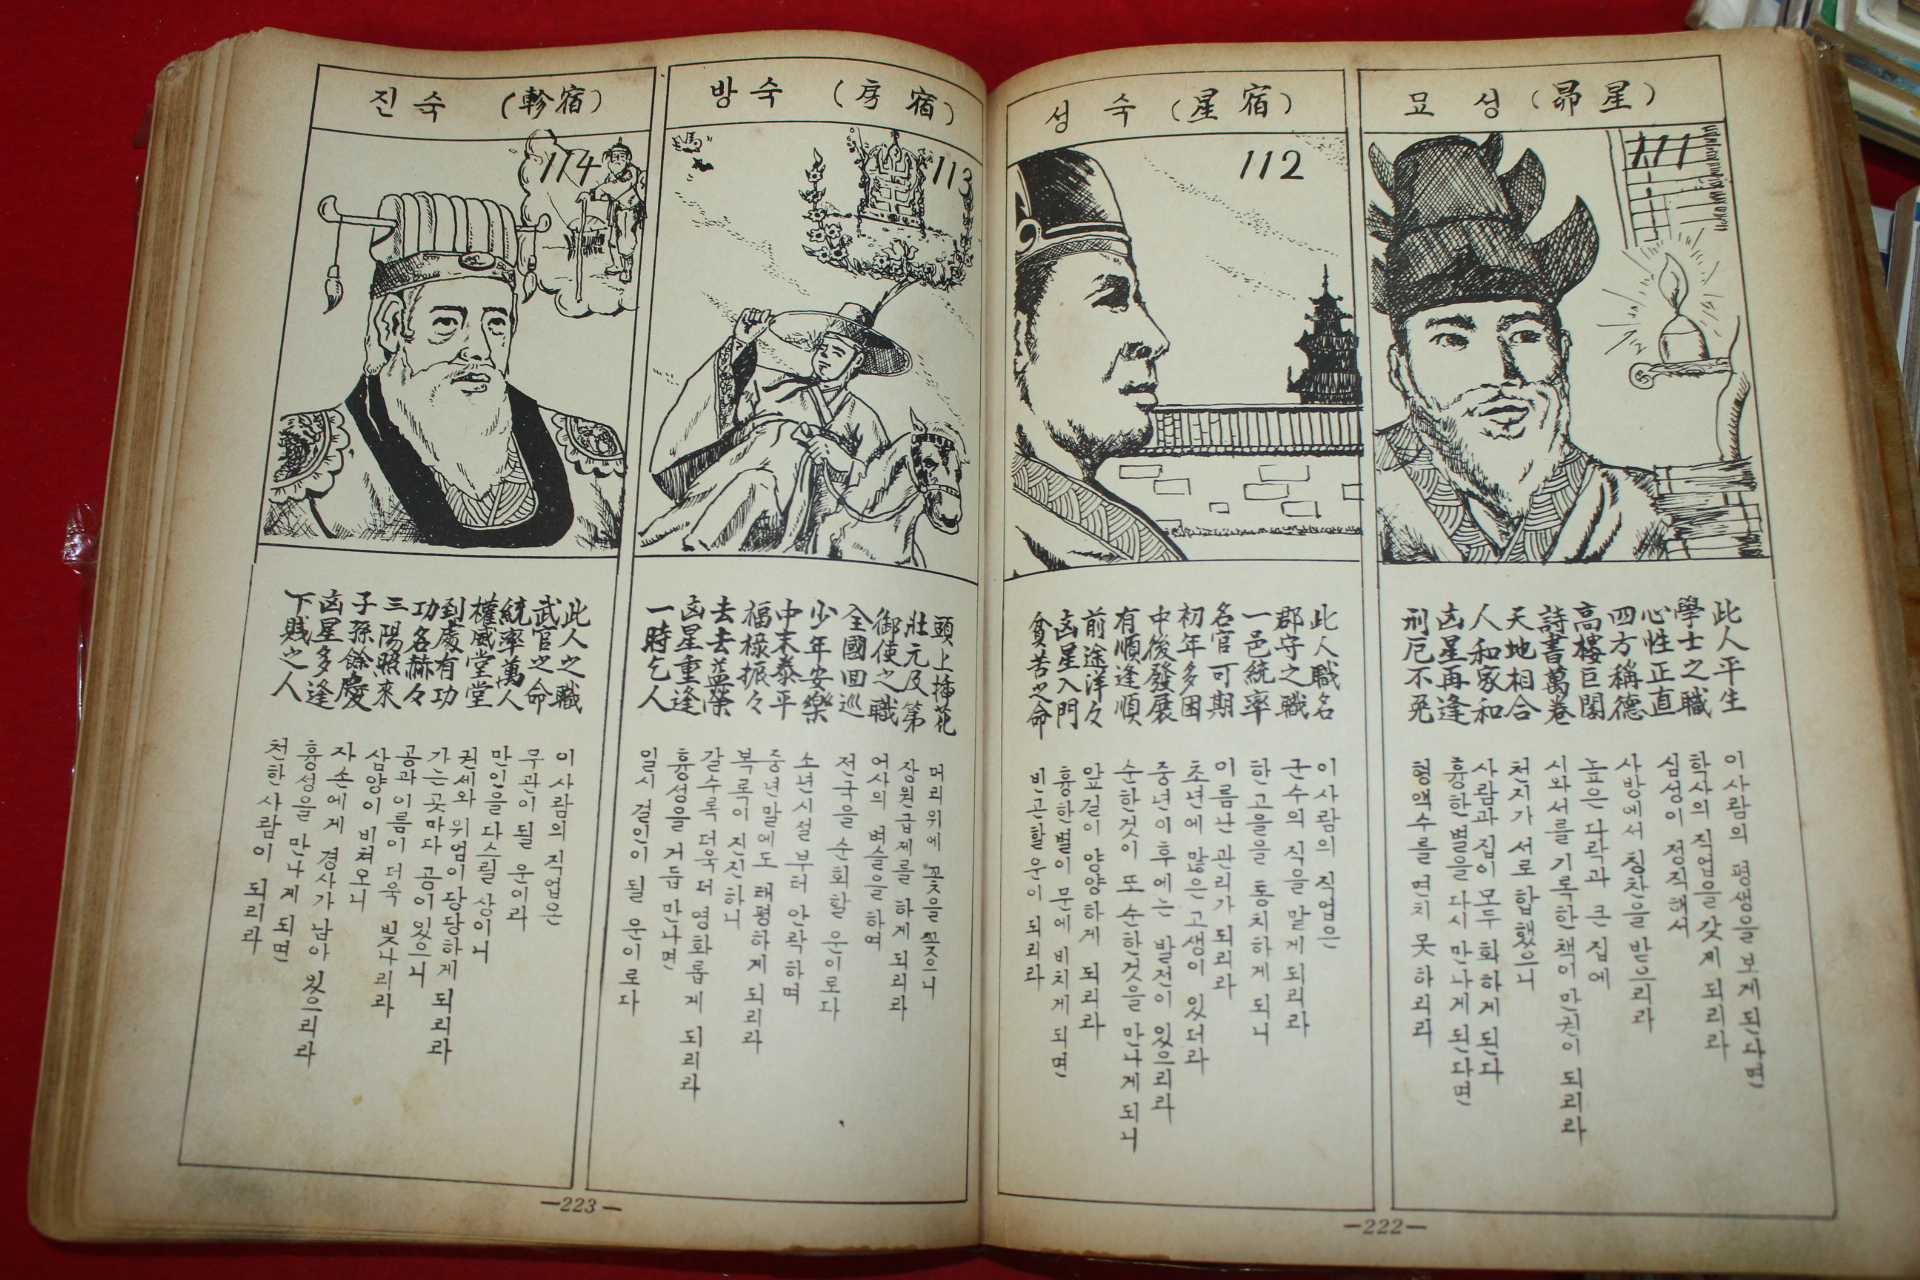 묘성 (昴星)
111
此人平生
學士之職
心性正直
四方稱德
高樓巨閣
詩書萬卷
天地相合
人和家和
凶星再逢
刑厄不免
이사람의 평생을 보게 된다면
학사의 직업을 갖게 되리라
심성이 정직해서
사방에서 칭찬을 받으리라
높은 다락과 큰 집에
시와서를 기록한 책이 만권이 되리라
천지가 서로 합했으니
사람과 집이 모두 화하게 된다
흉한별을 다시 만나게 된다면
형액수를 면치 못하리라
성숙 (星宿)
112
此人職名
郡守之職
一邑統率
名官可期
初年多困
中後發展
有順逢順
前途洋々
凶星入門
貧苦之命
이사람의 직업은
군수의 직을 맡게되리라
한고을을 통치하게 되니
이름난 관리가 되리라
초년에 많은고생이 있더라
중년이후에는 발전이 있으리라
순한것이 또 순한것을 만나게 되니
앞길이 양양하게 되리라
흉한별이 문에 비치게 되면
빈곤할운이 되리라
—222—
방숙 (房宿)
113
馬
頭上揷花
壯元及第
御使之職
全國回巡
少年安樂
中末泰平
福祿振々
去去益榮
凶星重逢
一時乞人
머리위에 꽃을 꽂으니
장원급제를 하게 되리라
어사의 벼슬을하여
전국을 순회할 운이로다
소년시절부터 안락하며
중년말에도 태평하게 되리라
복록이 진진하니
갈수록 더욱더 영화롭게 되리라
흉성을 거듭 만나면
일시 걸인이 될 운이로다
진숙 (軫宿)
114
此人之職
武官之命
統率萬人
權威堂堂
到處有功
功名赫々
三陽照來
子孫餘慶
凶星多逢
下賤之人
이사람의 직업은
무관이될 운이라
만인을 다스릴 상이니
권세와 위엄이 당당하게 되리라
가는곳마다 공이있으니
공과이름이 더욱 빛나리라
삼양이 비쳐오니
자손에게 경사가 남아 있으리라
흉성을 만나게 되면
천한사람이 되리라
—223—